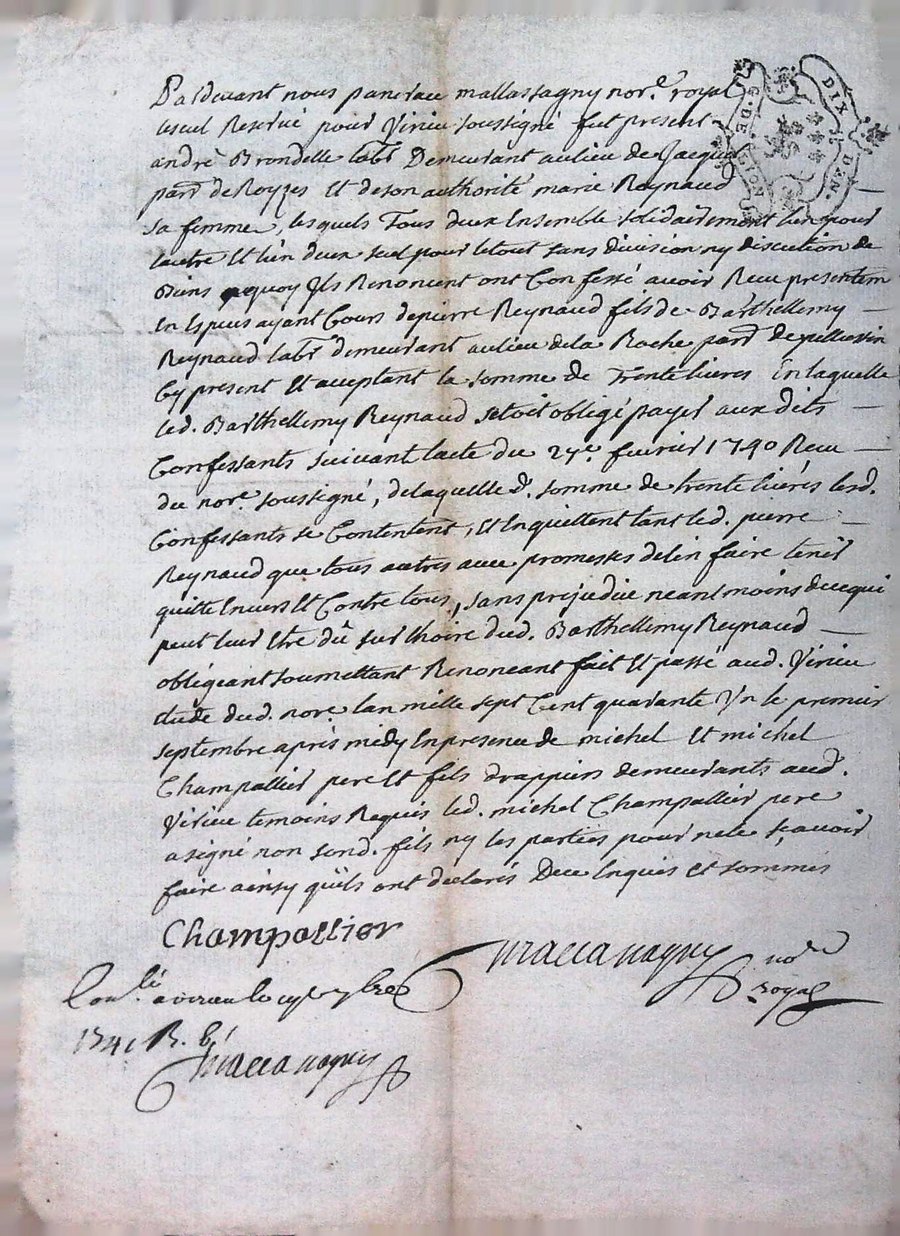 Pardevant nous pancrace mallassagny nore. royal
reservé pour Virieu soussigné fut present
andré Brondelle labr. Demeurant au lieu de Jacquis
parr. de Royzes Et de son authorité marie Reynaud
sa femme, lesquels Tous deux Ensemble solidairement lun pour
lautre Et lun deux seul pour letout sans division ny discution de
Biens aquoy Ils Renoncent ont Confessé avoir Receu presentem
En Especes ayant Cours de pierre Reynaud fils de Barthellemy
Reynaud labr. demeurant au lieu dela Roche parr. de pellussin
Cy present Et acceptant la somme de Trente livres En laquelle
led. Barthellemy Reynaud setoit obligé payer aux dits
Confessants suivant lacte du 27e. fevrier 1740 Receu
du nore. soussigné, delaquelle d. somme de trente livres lesd.
Confessants se Contentent, Et Enquittent tant led. pierre
Reynaud que tous autres avec promesses delen faire tenir
quitte Envers Et Contre tous, sans prejudice neantmoins de ce qui
peut leur Etre dû sur lhoire dud. Barthellemy Reynaud
obligeant soumettant Renonceant fait Et passé aud. Virieu
Etude dud. nore. lan mille sept Cent quarante Un le premier
septembre apres midy En presence de michel Et michel
Champallier pere Et fils drappiers demeurants aud.
Virieu temoins Requis led. michel Champallier pere
a signé non sond. fils ny les parties pour ne le sçavoir
faire ainsy quils ont declarés Dece Enquis et sommés
Champallier
Mallassagny nore
royal
Conlé. a virieu le 7bre
1741 R.
Mallassagny
G. DE LION
DIX DEN.